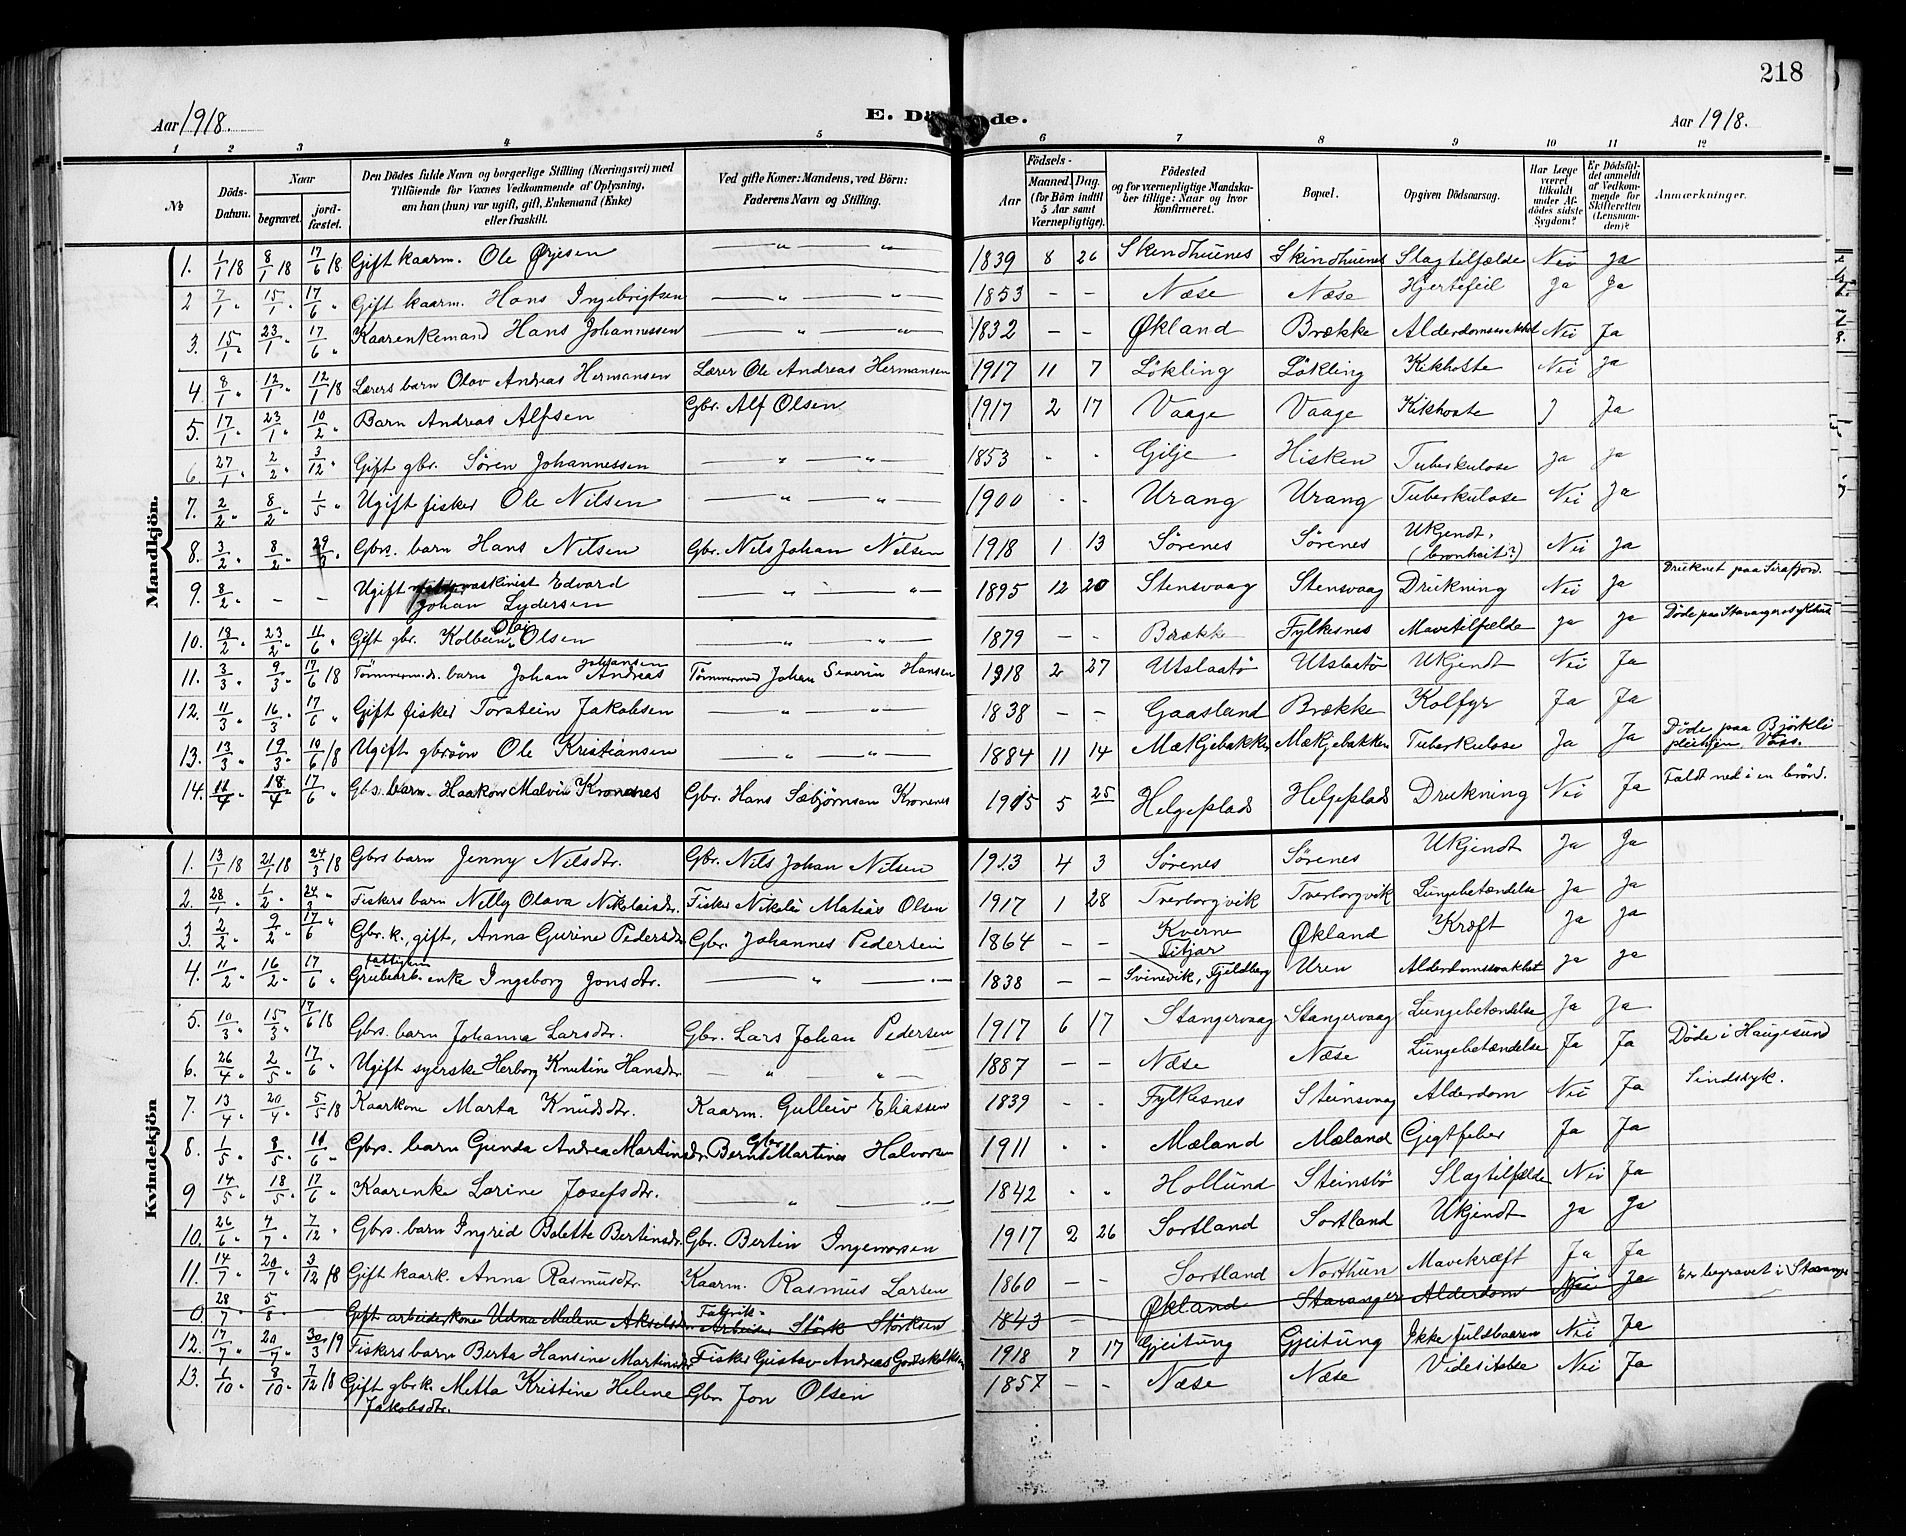 218
Aar 1918.
E. Dö de.
Aar 1918.
1 2 3 4 5 6 7 8 9 10 11 12
№
Döds-Datum.
Naar
begravet.
jord-fæstet.
Den Dödes fulde Navn og borgerlige Stilling (Næringsvei) med
Tilföiende for Voxnes Vedkommende af Oplysning,
om han (hun) var ugift, gift, Enkemand (Enke)
eller fraskilt.
Ved gifte Koner: Mandens, ved Börn:
Faderens Navn og Stilling.
Födsels-
Aar
Maaned. Dag.
(for Börn indtil
5 Aar samt
Værnepligtige).
Födested
og for værnepligtige Mandska-
ber tillige: Naar og hvor
konfirmeret.
Bopæl.
Opgiven Dödsaarsag.
Har Læge
været
tilkaldt
under Af-
dödes sidste
Sygdom?
Er Dödsfal-
det anmeldt
af Vedkom-
mende for
Skifteretten
(Lensman-
den)?
Anmærkninger.
Mandkjön.
1. 1/1 18 8/1 18 17/6 18 Gift kaarm. Ole Øyesen — " — " — 1839 8 26 Skindhuenes Skindhuenes Slagtilfælde Nei Ja
2 7/1 " 15/1 " 17/6 " Gift kaarm. Hans Ingebrigtsen — " — " — 1853 – – Næse Næse Hjertefeil Ja Ja
3. 15/1 " 23/1 " 17/6 " Kaarenkemand Hans Johannessen — " — " — 1832 – – Økland Brække Alderdomssvakhet Nei Ja
4. 8/1 " 12/1 " 12/1 18 Lærers barn Olav Andreas Hermansen Lærer Ole Andreas Hermansen 1917 11 7 Lökling Lökling Kikhoste Nei Ja
5. 17/1 " 23/1 " 10/2 " Barn Andreas Alfsen Gbr. Alf Olsen 1917 2 17 Vaage Vaage Kikhoste J Ja
6. 27/1 " 2/2 " 3/12 " Gift gbr. Sören Johannessen — " — " — 1853 - - Gilje Hisken Tuberkulose Ja Ja
7. 2/2 " 8/2 " 1/5 " Ugift fisker Ole Nilsen — " — " — 1900 - - Urang Urang Tuberkulose Nei Ja
8. 3/2 " 8/2 " 29/3 " Gbrs. barn Hans Nilsen Gbr. Nils Johan Nilsen 1918 1 13 Sørenes Sørenes Ukjendt, (bronkait?) Nei Ja
9. 8/2 " – – Ugift maskinist Edvard
Johan Lydersen — " — " — 1895 12 20 Stensvaag Stensvaag Drukning Nei Ja Druknet paa Sirafjord.
10. 18/2 " 23/2 " 11/6 " Gift gbr. Kolbein Olai Olsen — " — " — 1879 – – Brækk Fylkesnes Mavetilfælde Ja Ja Døde paa Stavanger sykehus
11. 3/3 " 9/3 " 17/6 18 Tömmerm.ds. barn Johan Andreas Johansen Tömmermd Johan Severin Hansen 1918 2 27 Utslaatø Utslaatø Ukjendt Nei Ja
12. 11/3 " 16/3 " 17/6 " Gift fisker Torstein Jakobsen — " — " — 1838 – – Gaasland Brække Kolfyr Ja Ja
13. 13/3 " 19/3 " 10/6 18 Ugift gbrsøn Ole Kristiansen — " — " — 1884 11 14 Mækjebakken Mækjebakken Tuberkulose Ja Ja Döde paa Björkli
pleiehjem Voss.
14. 11/4 " 18/4 " 17/6 " Gbs. barn. Haakon Malvin Kronenes Gbr. Hans Sæbjörnsen Kronenes 1915 5 25 Helgeplads Helgeplads Drukning Nei Ja Faldt ned i en brønd.
Kvindekjön
1. 13/1 18 21/1 18 24/3 18 Gbrs barn Jenny Nilsdtr. Gbr. Nils Johan Nilsen 1913 4 3 Sørenes Sørenes Ukjendt Ja Ja
2. 28/1 " 1/2 " 24/3 " Fiskers barn Nelly Olava Nikolaisdtr. Fisker Nikolai Matias Olsen 1917 1 28 Tverborgvik Tverborgvik Lungebetændelse Ja Ja
3. 2/2 " 9/2 " 17/6 Gbr. k., gift, Anna Gurine Pedersdtr Gbr. Johannes Pedersen 1864 – – Kverne
Fitjar Økland Kræft Ja Ja
4. 11/2 " 16/2 " 17/6 Grubearb. enke fattiglem Ingeborg Jonsdtr. — " — 1838 – – Svinevik, Fjeldberg Uren Alderdomssvakhet Ja Ja
5. 10/3 " 15/3 " 17/6 18 Gbrs. barn Johanna Larsdtr. Gbr. Lars Johan Pedersen 1917 6 17 Stangervaag Stangervaag Lungebetændelse Ja Ja
6. 26/4 " 2/5 " 17/6 " Ugift syerske Herborg Knutine Hansdtr. — " — " — 1887 – – Næse Næse Lungebetændelse Ja Ja Døde i Haugesund
7. 13/4 " 20/4 " 5/5 18 Kaarkone Marta Knudsdtr. Kaarm. Gulleiv Eliassen 1839 - - Fylkesnes Steinsvaag Alderdom Nei Ja Sindssyk.
8. 1/5 " 8/5 " 10/6 " Gbrs. barn Gunda Andrea Martinsdtr Gbr Bernt Martines Halvorsen 1911 " " Mæland Mæland Gigtfeber Ja Ja
9 14/5 " 18/5 " 17/6 " Kaarenke Larine Josefsdtr. — " — " — 1842 " " Hollund Steinsbö Slagtilfælde Nei Ja
10. 26/6 " 4/7 " 7/12 " Gbrs. barn Ingrid Bolette Bertinsdtr. Gbr. Bertin Ingemorsen 1917 2 26 Sortland Sortland Ukjendt Ja Ja
11. 14/7 " 20/7 " 3/12 18 Gift kaark. Anna Rasmusdtr. Kaarm. Rasmus Larsen 1860 – – Sortland Northun Mavekræft Ja Ja
0. 28/7 5/8 Gift arbeiderkone Udna Malene Akselsdtr. Fabrik-
Arbeider Störk Störksen 1843 – Økland Stavanger Alderdom Nei Ja Er begravet i Stavanger
12. 17/7 " 20/7 " 30/3 19 Fiskers barn Berta Hansine Martinsdtr Fisker Gustav Andreas Godtskalksen 1918 7 17 Gjeitung Gjeitung Ikke fuldbaaren Nei Ja
13. 1/10 " 8/10 " 7/12 18 Gift gbrk. Metta Kristine Helene
Jakobsdtr. Gbr. Jon Olsen 1857 – – Næse Næse Nei Ja